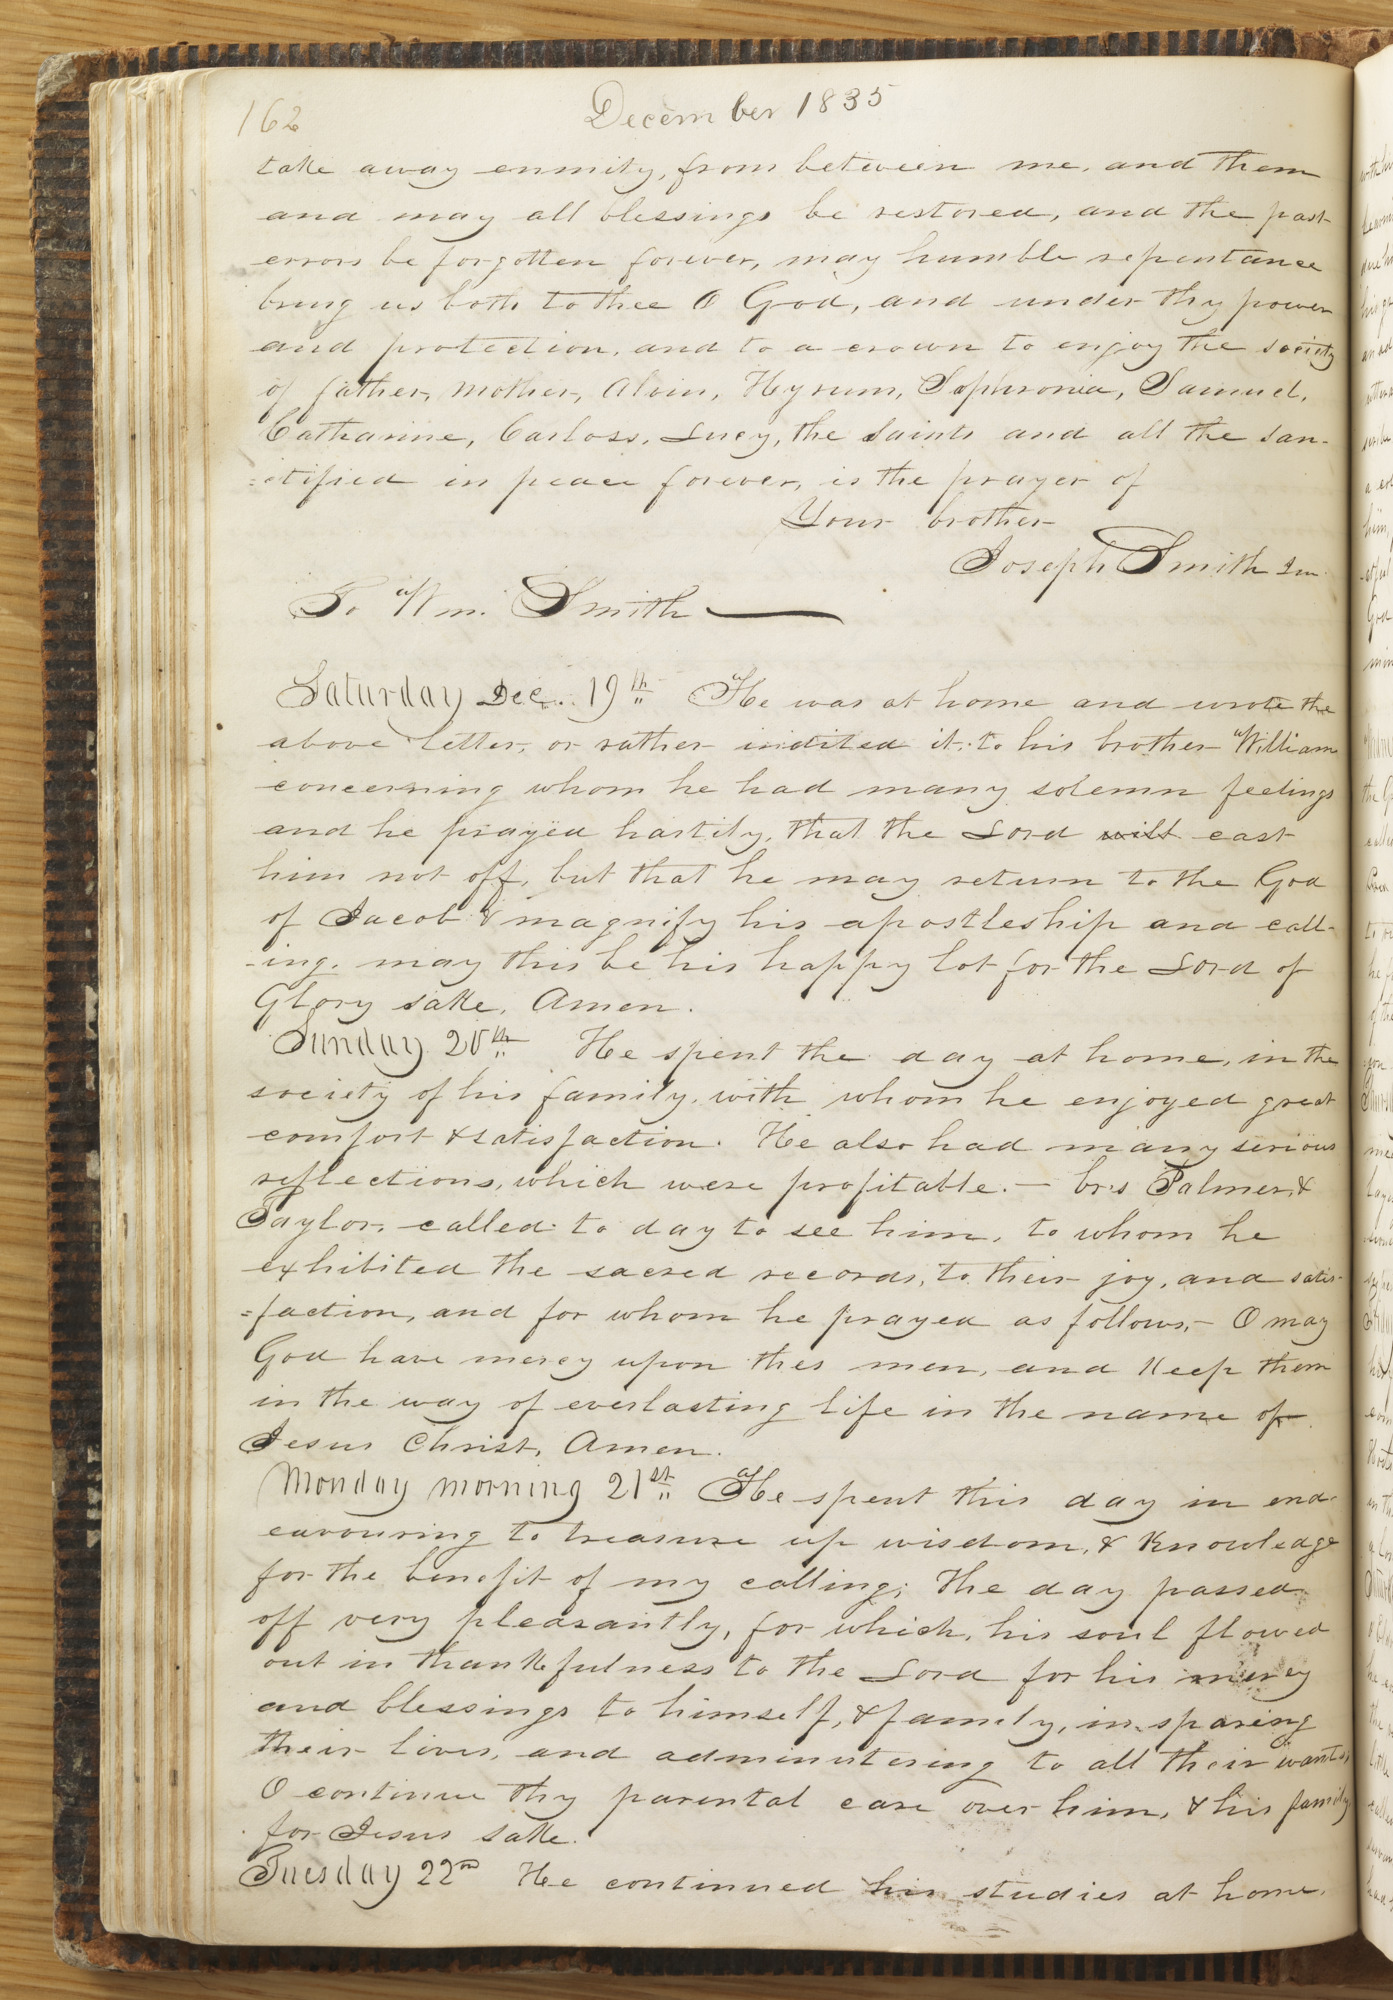 162
December 1835
take away enmity, from between me, and them
and may all blessings be restored, and the past
errors be forgotten forever, may humble repentance
bring us both to thee O God, and under thy power
and protection, and to a crown to enjoy the society
of father, mother, Alvin, Hyrum, Sophronia, Samuel,
Catharine, Carloss, Lucy, the Saints and all the san-
=ctified in peace forever, is the prayer of
Your brother
Joseph Smith Jun.
To Wm. Smith
Saturday Dec. 19th He was at home and wrote the
above letter, or rather indited it, to his brother William
concerning whom he had many solemn feelings
and he prayed hartily, that the Lord will cast
him not off, but that he may return to the God
of Jacob & magnify his apostleship and call-
-ing. may this be his happy lot for the Lord of
Glory sake, Amen.
Sunday 20th He spent the day at home, in the
society of his family, with whom he enjoyed great
comfort & satisfaction. He also had many serious
reflections, which were profitable.— brs Palmer, &
Taylor, called to day to see him, to whom he
exhibited the sacred records, to their joy, and satis-
=faction, and for whom he prayed as follows,— O may
God have mercy upon thes men, and keep them
in the way of everlasting life in the name of
Jesus Christ, Amen.
Monday morning 21st He spent this day in end-
eavouring to treasure up wisdom, & knowledge
for the benefit of my calling; the day passed
off very pleasantly, for which, his soul flowed
out in thankfulness to the Lord for his mercy
and blessings to himself, & family, in sparing
their lives, and administering to all their wants,
O continue thy parental care over him, & his family
for Jesus sake.
Tuesday 22nd He continued his studies at home.